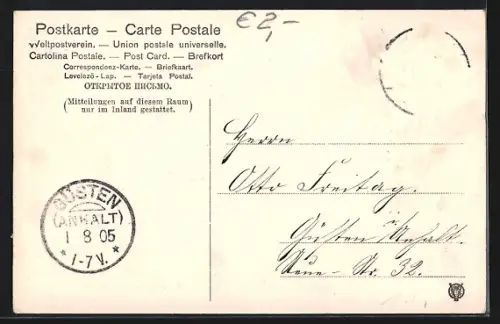 €2,-
Postkarte – Carte Postale
Weltpostverein. — Union postale universelle.
Cartolina Postale. — Post Card. — Brefkort
Correspondenz-Karte. — Briefkaart.
Levelező-Lap. — Tarjeta Postal.
ОТКРЫТОЕ ПИСЬМО.
(Mitteilungen auf diesem Raum
nur im Inland gestattet.)
Herrn
Otto Freitag.
Güsten i/Anhalt.
Neue-Str. 32.
GÜSTEN
(ANHALT)
1 8 05
* 1-7 V. *